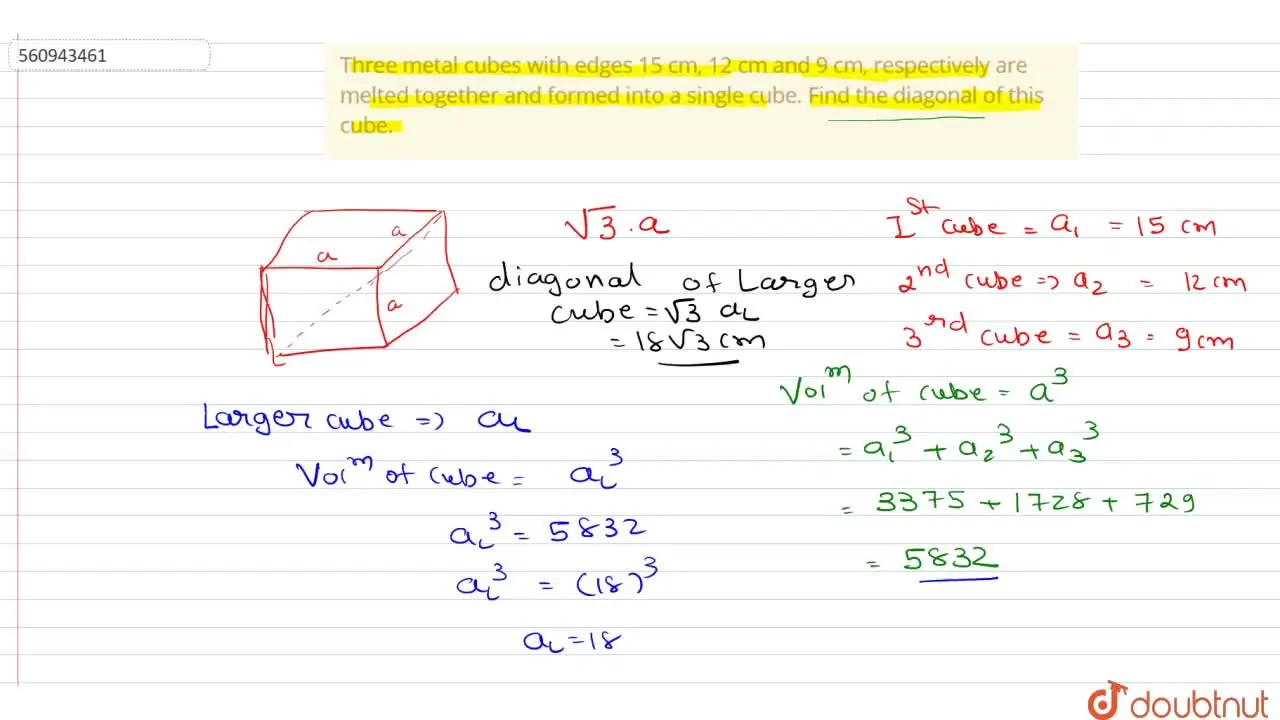 560943461
Three metal cubes with edges 15 cm, 12 cm and 9 cm, respectively are
melted together and formed into a single cube. Find the diagonal of this
cube.
a
a
a
√3.a
diagonal of Larger
cube = √3 aL
= 18√3 cm
Ist cube = a1 = 15 cm
2nd cube => a2 = 12 cm
3rd cube = a3 = 9cm
Volm of cube = a³
= a1³ + a2³ + a3³
= 3375 + 1728 + 729
= 5832
Larger cube => aL
Volm of cube = aL³
aL³ = 5832
aL³ = (18)³
aL = 18
doubtnut